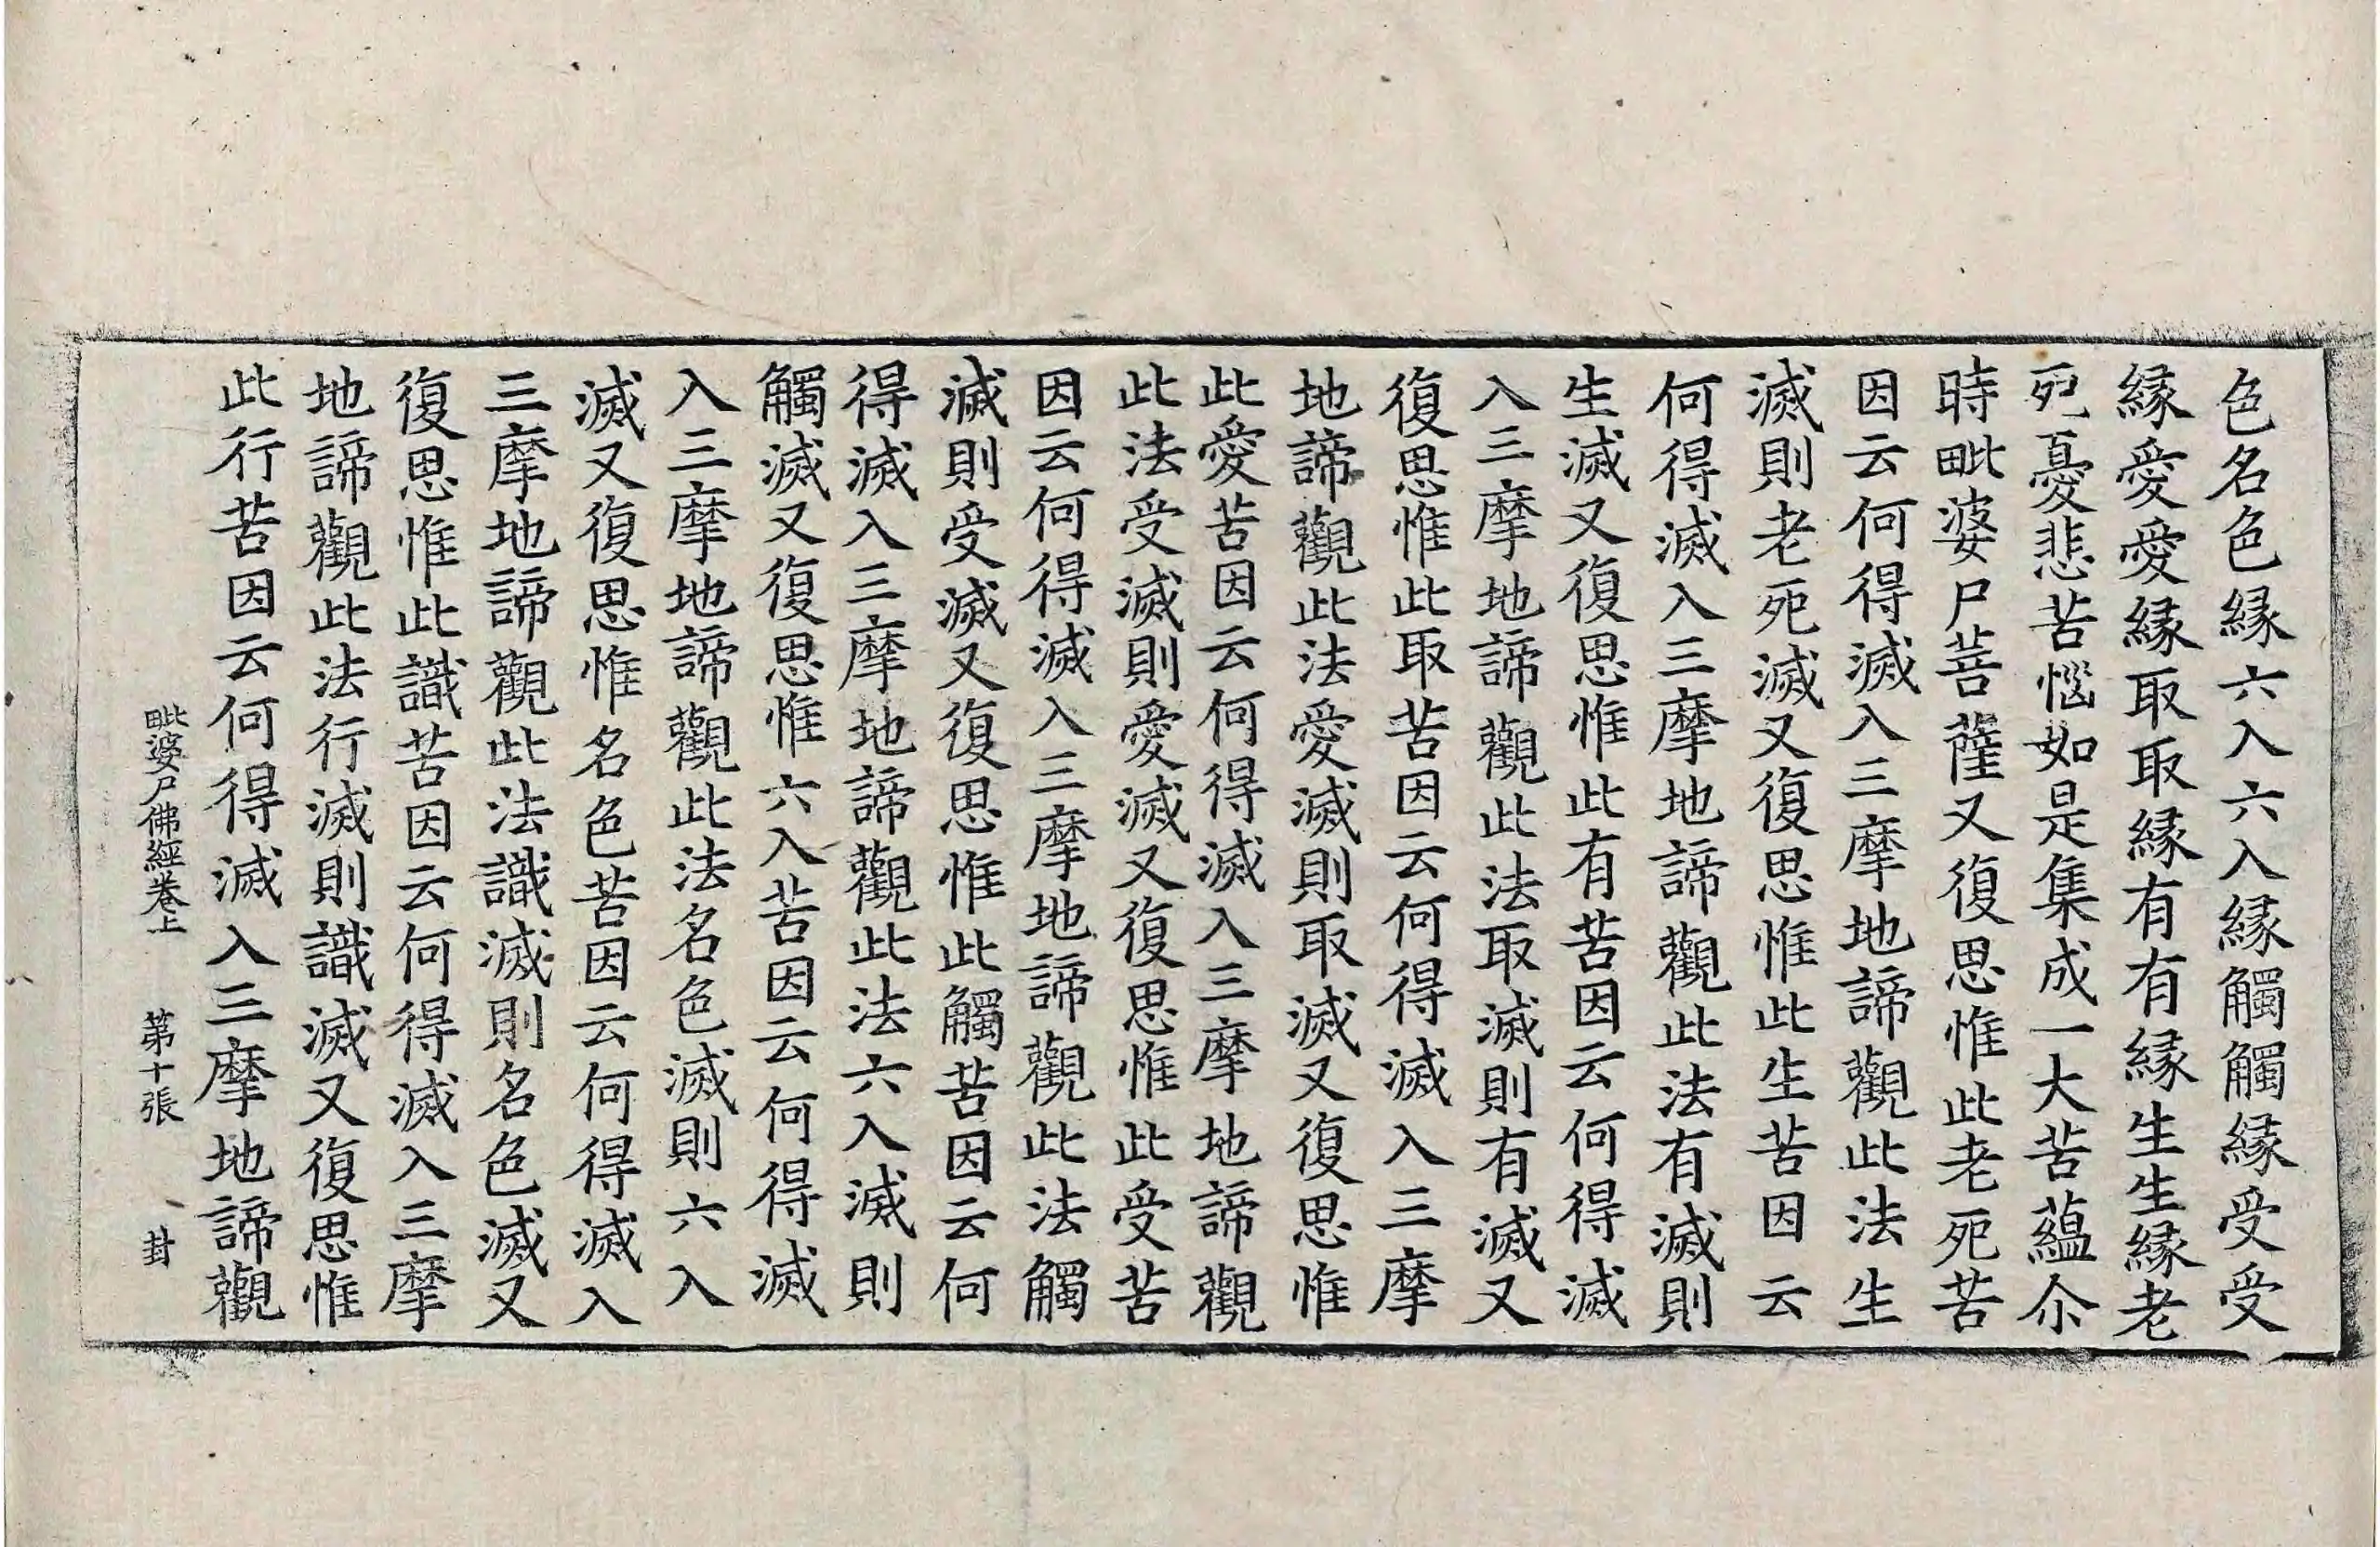 色名色縁六入六入縁觸觸縁受受
縁愛愛縁取取縁有有縁生生縁老
死憂悲苦惱如是集成一大苦蘊尒
時毗婆尸菩薩又復思惟此老死苦
因云何得滅入三摩地諦觀此法生
滅則老死滅又復思惟此生苦因云
何得滅入三摩地諦觀此法有滅則
生滅又復思惟此有苦因云何得滅
入三摩地諦觀此法取滅則有滅又
復思惟此取苦因云何得滅入三摩
地諦觀此法愛滅則取滅又復思惟
此愛苦因云何得滅入三摩地諦觀
此法受滅則愛滅又復思惟此受苦
因云何得滅入三摩地諦觀此法觸
滅則受滅又復思惟此觸苦因云何
得滅入三摩地諦觀此法六入滅則
觸滅又復思惟六入苦因云何得滅
入三摩地諦觀此法名色滅則六入
滅又復思惟名色苦因云何得滅入
三摩地諦觀此法識滅則名色滅又
復思惟此識苦因云何得滅入三摩
地諦觀此法行滅則識滅又復思惟
此行苦因云何得滅入三摩地諦觀
毗婆尸佛經卷上 第十張 封